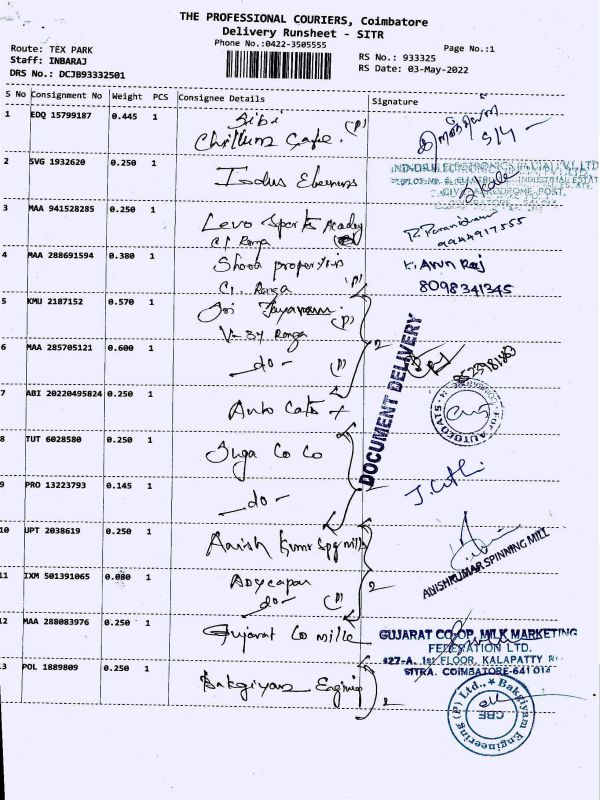 THE PROFESSIONAL COURIERS, Coimbatore
Delivery Runsheet - SITR
Phone No.:0422-3505555
Page No.:1
Route: TEX PARK
Staff: INBARAJ
DRS No.: DCJB93332501
RS No.: 933325
RS Date: 03-May-2022
S No Consignment No Weight PCS Consignee Details Signature
1 EDQ 15799187 0.445 1 Sibi
Chillinz Cafe. (P)
2 SVG 1932620 0.250 1
Indus
3 MAA 941528285 0.250 1 Levo Sports Academy
C/ Ranga
9944917555
4 MAA 288691594 0.380 1 Shoba properties
C/. Ranga
K. Arun Raj
8098341345
5 KMU 2187152 0.570 1 Sri Jayaram (P)
V-34 Ranga
2
6 MAA 285705121 0.600 1 -do- (P)
DOCUMENT DELIVERY
7 ABI 20220495824 0.250 1 Auto Cats
FOR AUTOCOATS
8 TUT 6028580 0.250 1 Suga Co Co
9 PRO 13223793 0.145 1 -do-
2
10 UPT 2038619 0.250 1 Anish Kumar Spg mill
ANISHKUMAR SPINNING MILL
11 IXM 501391065 0.080 1
-do- (P)
2
12 MAA 288083976 0.250 1 Gujarat Co mille
GUJARAT CO-OP. MILK MARKETING
FEDERATION LTD.
427-A, 1st FLOOR, KALAPATTY
SITRA. COIMBATORE-641 014
13 POL 1889809 0.250 1 Bakgiyam Enging
Bakgiyam Engineering (P) Ltd.,
CBE